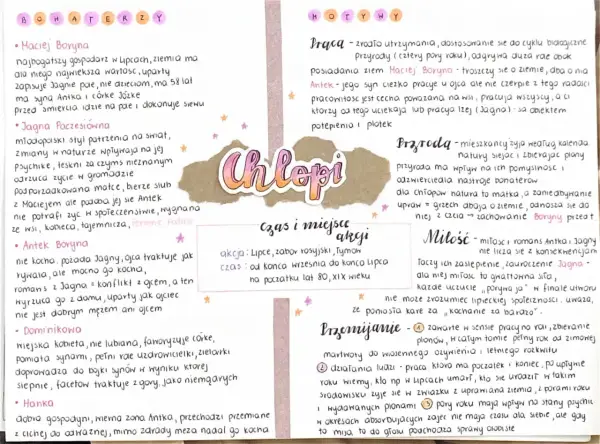 BOHATERZY
• Maciej Boryna
najbogatszy gospodarz w Lipcach, ziemia ma
dla niego największa wartość, uparty
zapisuje Jagnie pole, nie dzieciom, ma 58 lat
ma syna Antka i córkę Józkę
przed śmiercią idzie na pole i dokonuje siewu
• Jagna Paczesiówna
młodopolski styl patrzenia na świat,
zmiany w naturze wpływają na jej
psychikę, tęskni za czymś nieznanym
odrzuca życie w gromadzie
podporządkowana matce, bierze ślub
z Maciejem ale podoba jej się Antek
nie potrafi żyć w społeczeństwie, wygnana
ze wsi, kobieca, tajemnicza,
• Antek Boryna
nie kocha, pożąda Jagny, ojca traktuje jak
rywala, ale mocno go kocha,
romans z Jagną = konflikt z ojcem, a ten
wyrzuca go z domu, uparty jak ojciec
nie jest dobrym mężem ani ojcem
• Dominikowa
wiejska kobieta, nie lubiana, faworyzuje córkę,
pomiata synami, pełni rolę uzdrowicielki, zielarki
doprowadza do bójki synów w wyniku której
ślepnie, facetów traktuje z góry, jako niemądrych
• Hanka
dobra gospodyni, wierna żona Antka, przechodzi przemianę
z cichej do odważnej, mimo zdrady męża nadal go kocha
Chłopi
Czas i miejsce
akcji
akcja: Lipce, zabór rosyjski, Tymów
czas: od końca września do końca lipca
na początku lat 80, XIX wieku
MOTYWY
Praca - źródło utrzymania, dostosowanie się do cyklu biologiczne
przyrody (cztery pory roku), odgrywa dużą rolę obok
posiadania ziem Maciej Boryna - troszczy się o ziemię, dba o nią
Antek - jego syn ciężko pracuje u ojca ale nie czerpie z tego radości
pracowitość jest cechą poważaną na wsi, pracują wszyscy, a ci
którzy od tego uciekają lub pracują lżej (Jagna) - są obiektem
potępienia i plotek
Przyroda - mieszkańcy żyją według kalenda
natury siejąc i zbierając plony
przyroda ma wpływ na ich pomyślność i
odzwierciedla nastroje bohaterów
dla chłopów natura to matka, a zaniedbywanie
upraw = grzech dbają o ziemię, odnoszą się do
niej z czcią → zachowanie Boryny przed ś
Miłość - miłość i romans Antka i Jagny
nie liczą się z konsekwencjami
łączy ich zaślepienie, zauroczenie Jagna -
dla niej miłość to gwałtowna siła,
każde uczucie "porywa ją" w finale utworu
nie może zrozumieć lipeckiej społeczności, uważa,
że poniosła karę za "kochanie za bardzo".
Przemijanie - ① zawarte w sensie pracy na roli, zbieranie
plonów, w całym tomie pełny rok od zimowej
martwoty do wiosennego ożywienia i letniego rozkwitu
② działania ludzi - praca, która ma początek i koniec, po upływie
roku wiemy, kto np w Lipcach umarł, kto się urodził w takim
środowisku żyje się w związku z uprawianą ziemią, z porami roku
i wydawanymi plonami ③ pory roku mają wpływ na stany psychic
w okresach absorbujących zajęć nie mają czasu dla siebie, ale gdy
to mija, to do głosu podchodzą sprawy osobiste